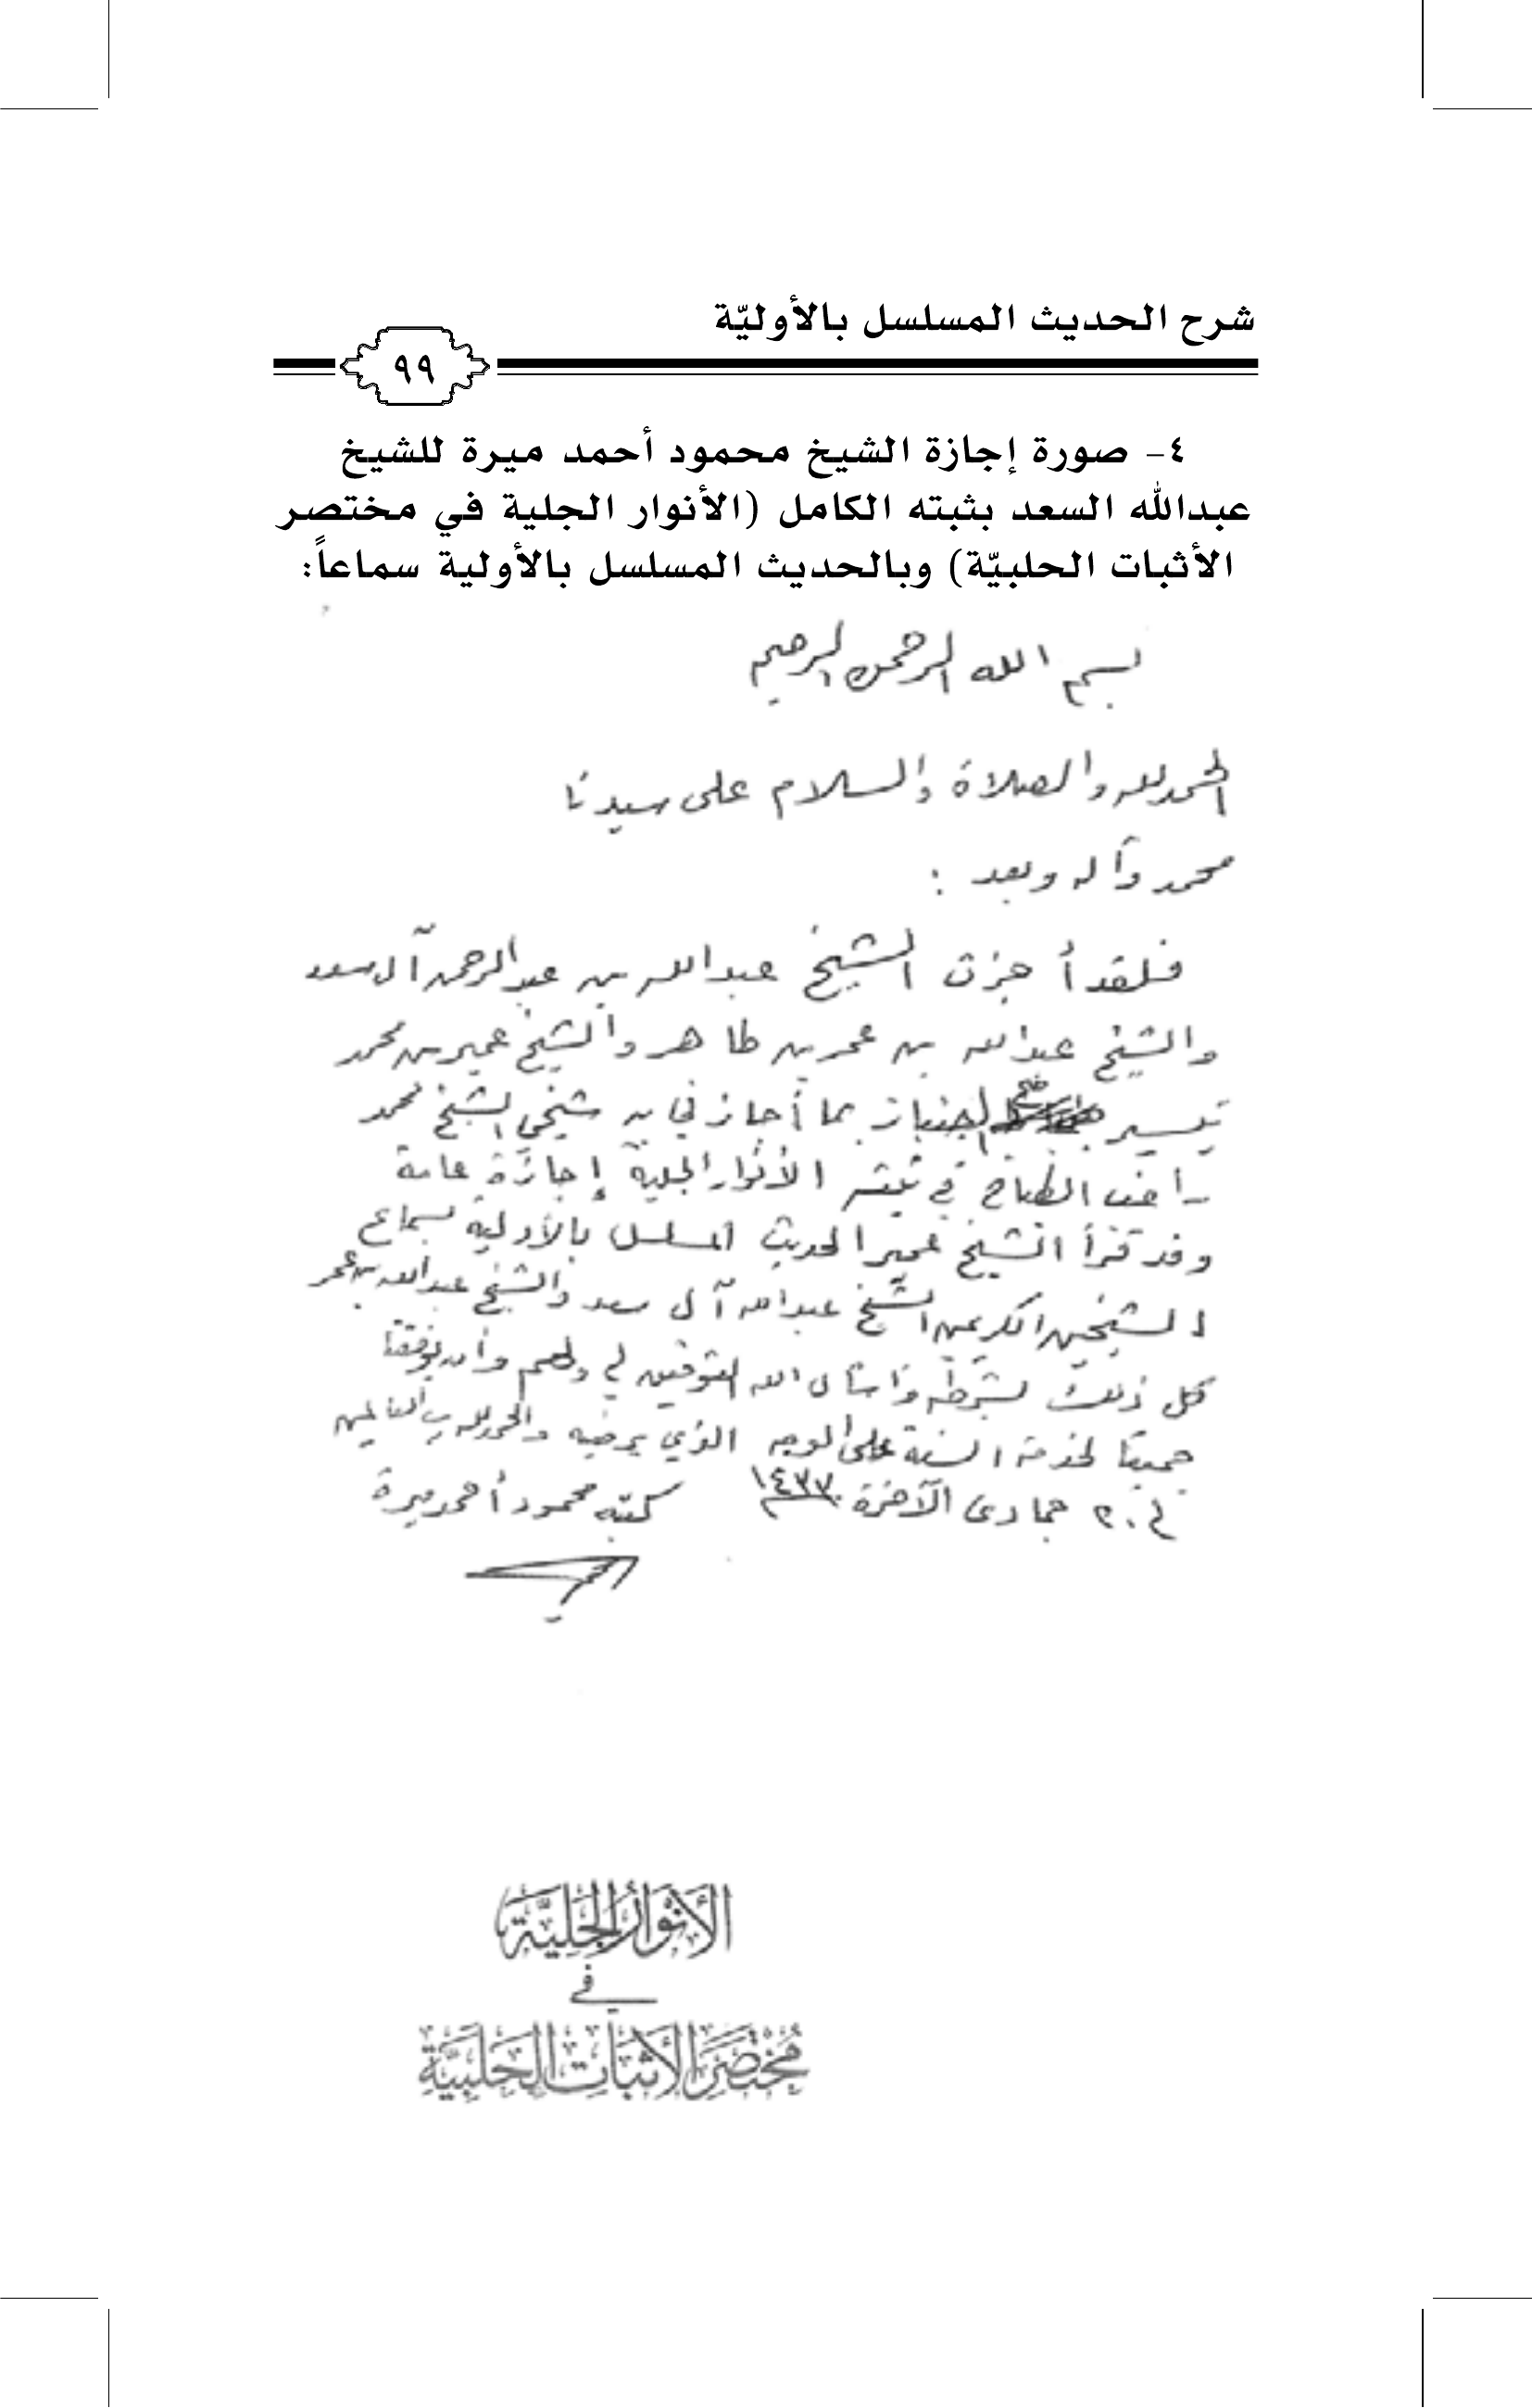 شرح الحديث المسلسل بالأوليّة
٩٩
٤- صورة إجازة الشيخ محمود أحمد ميرة للشيخ
عبدالله السعد بثبته الكامل (الأنوار الجلية في مختصر
الأثبات الحلبيّة) وبالحديث المسلسل بالأولية سماعاً:
بسم الله الرحمن الرحيم
الحمد لله والصلاة والسلام على سيدنا
محمد وآله وبعد :
فلقد أجزت الشيخ عبدالله بن عبدالرحمن آل سعد
والشيخ عبدالله بن عمر بن طاهر والشيخ عمير بن محمد
الجنباز بما أجازني به شيخي الشيخ محمد
راغب الطباخ في ثبته الأنوار الجلية إجازة عامة
وقد قرأ الشيخ عمير الحديث المسلسل بالأولية بسماع
الشيخين الكريمين الشيخ عبدالله آل سعد والشيخ عبدالله بن عمر
كل ذلك بشرطه وأسأل الله التوفيق لي ولهم وأن يوفقنا
جميعا لخدمة السنة على الوجه الذي يرضيه والحمد لله رب العالمين
جمادى الآخرة كتبه محمود أحمد ميرة
الأنوار الجلية
في
مختصر الأثبات الحلبية